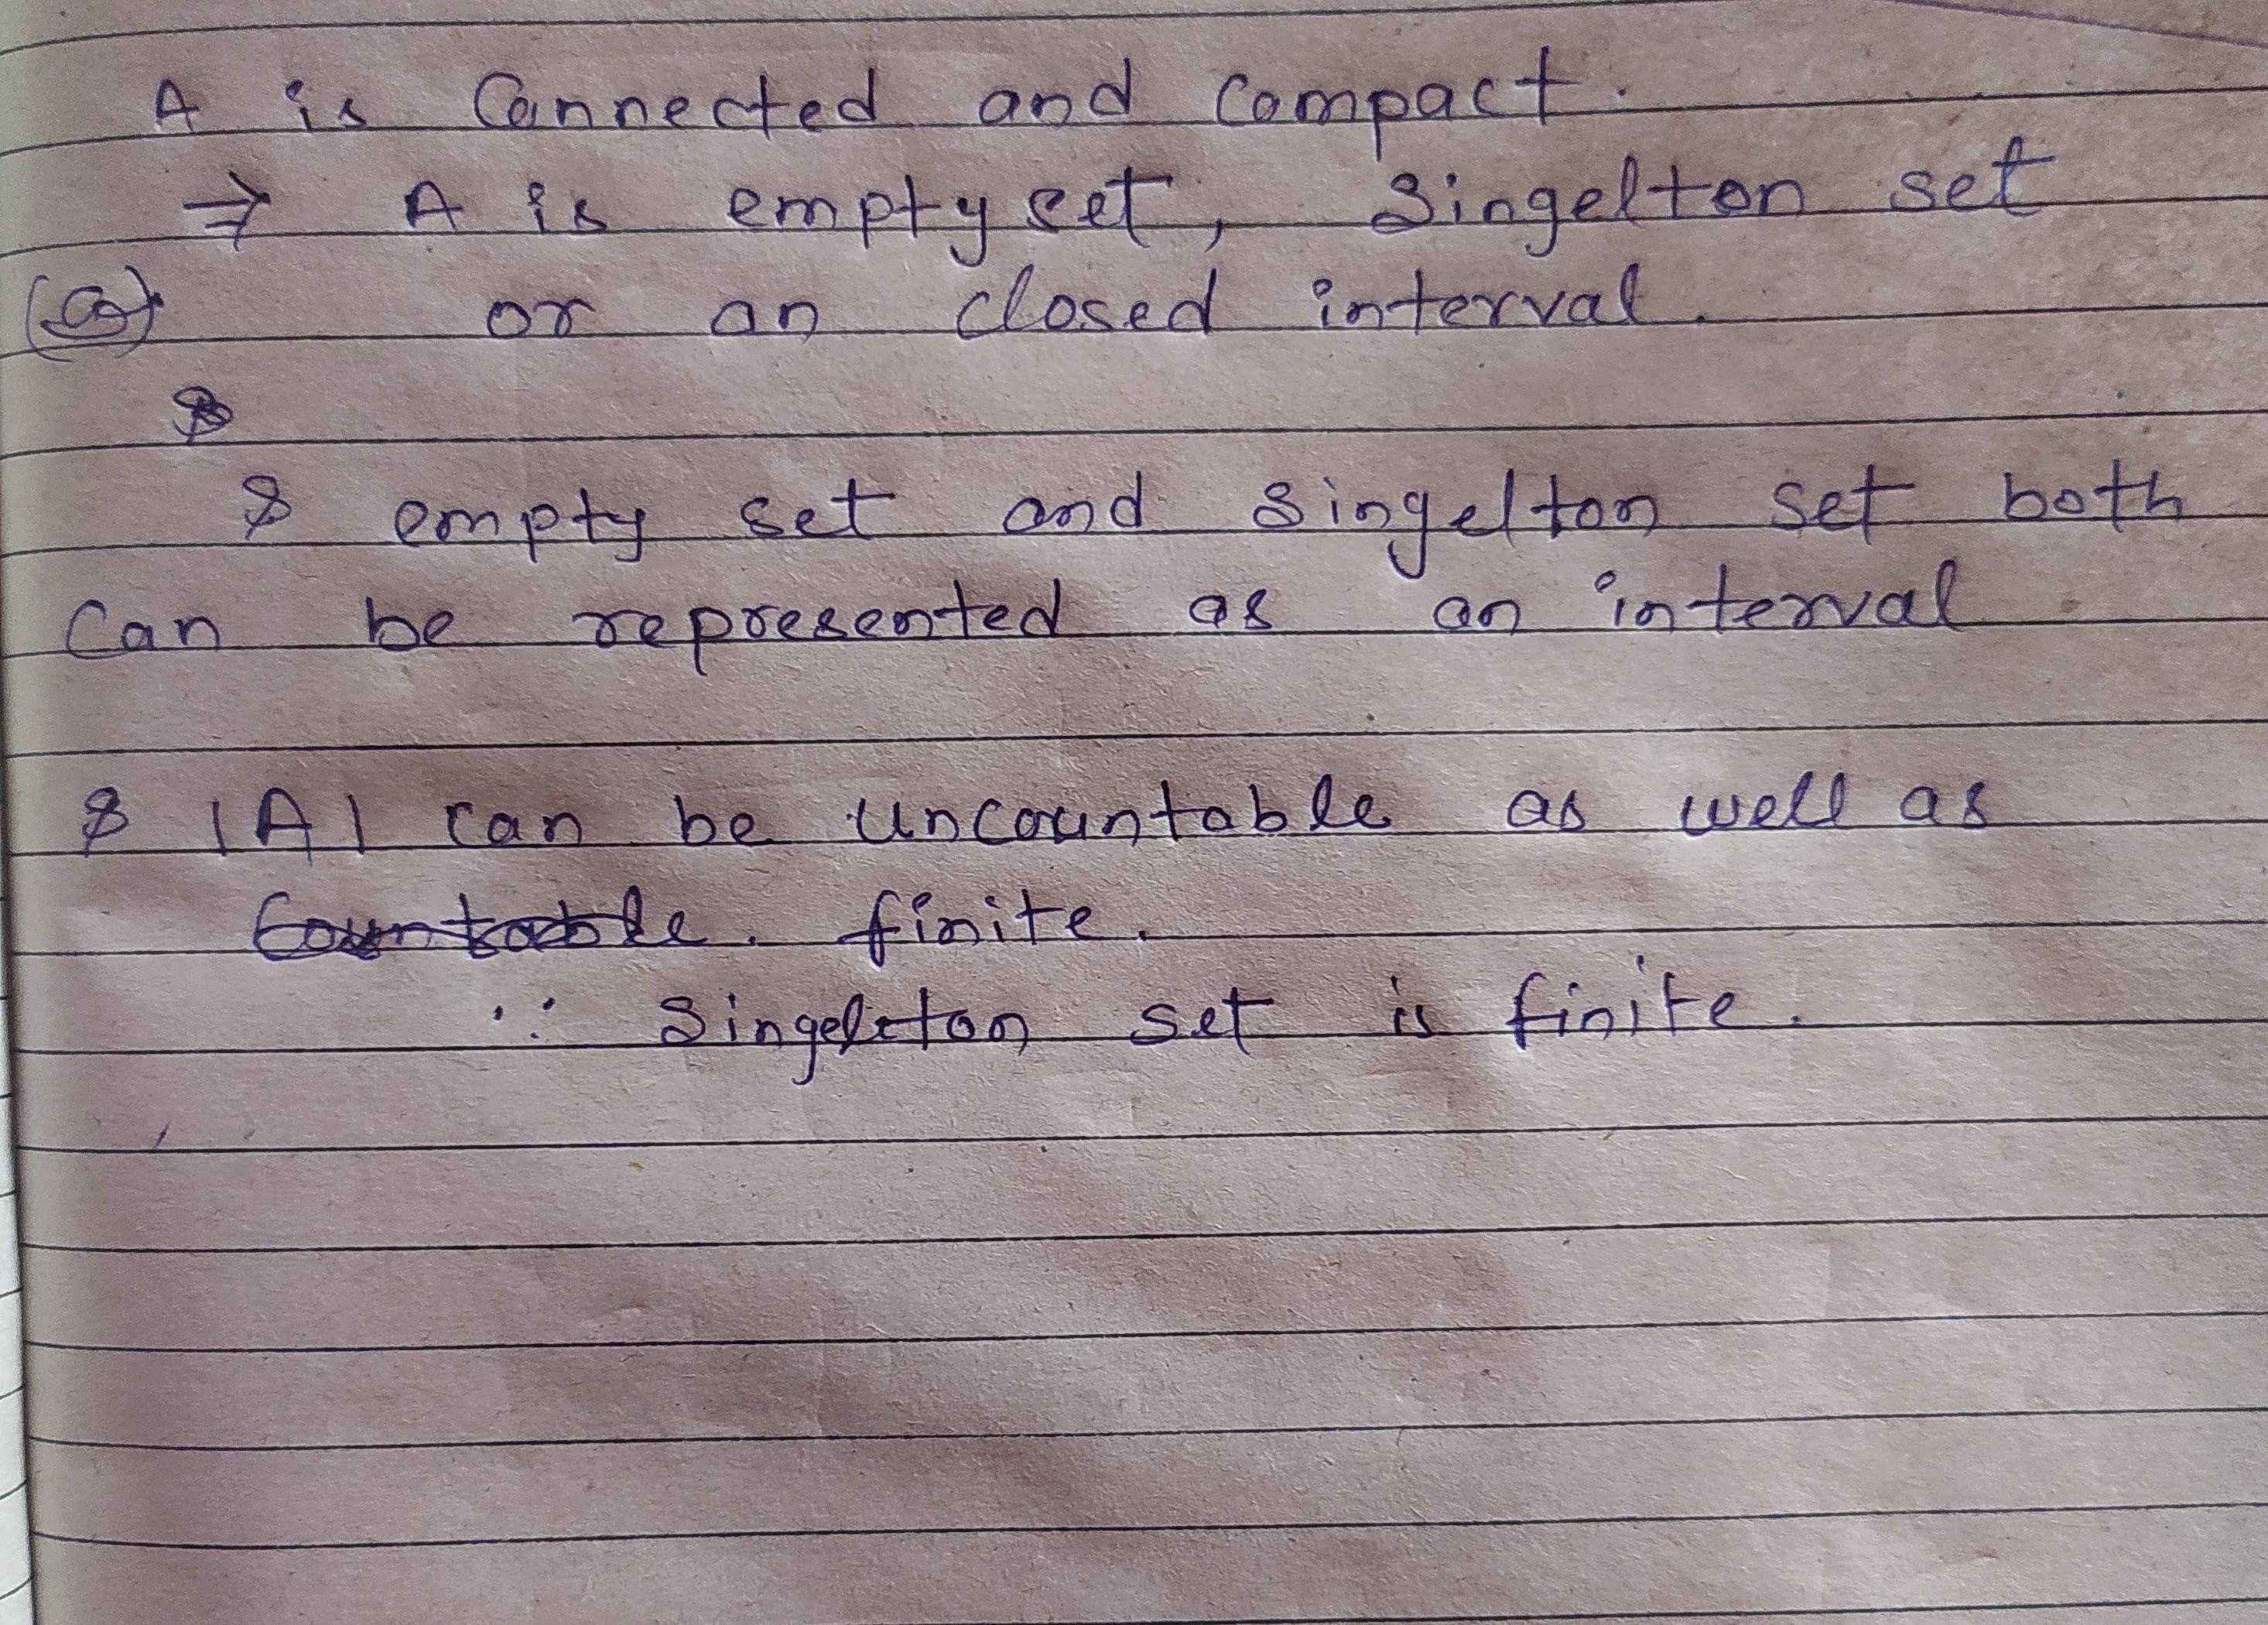 A is Connected and Compact.
⇒ A is empty set, Singelton set
or an closed interval.
& empty set and singelton set both
Can be represented as an interval
& |A| can be uncountable as well as
Countable. finite.
∵ Singelton set is finite.